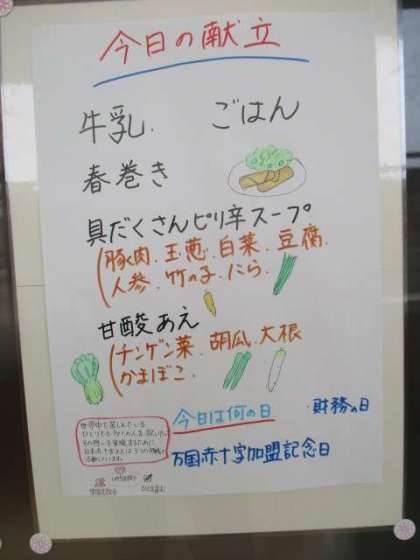 今日の献立
牛乳. ごはん
春巻き
具だくさんピリ辛スープ
(豚肉.玉葱.白菜.豆腐.
人参.竹の子.にら.
甘酸あえ
(チンゲン菜.胡瓜.大根
かまぼこ.
今日は何の日 ・財務の日
万国赤十字加盟記念日
世界中で苦しんでいる